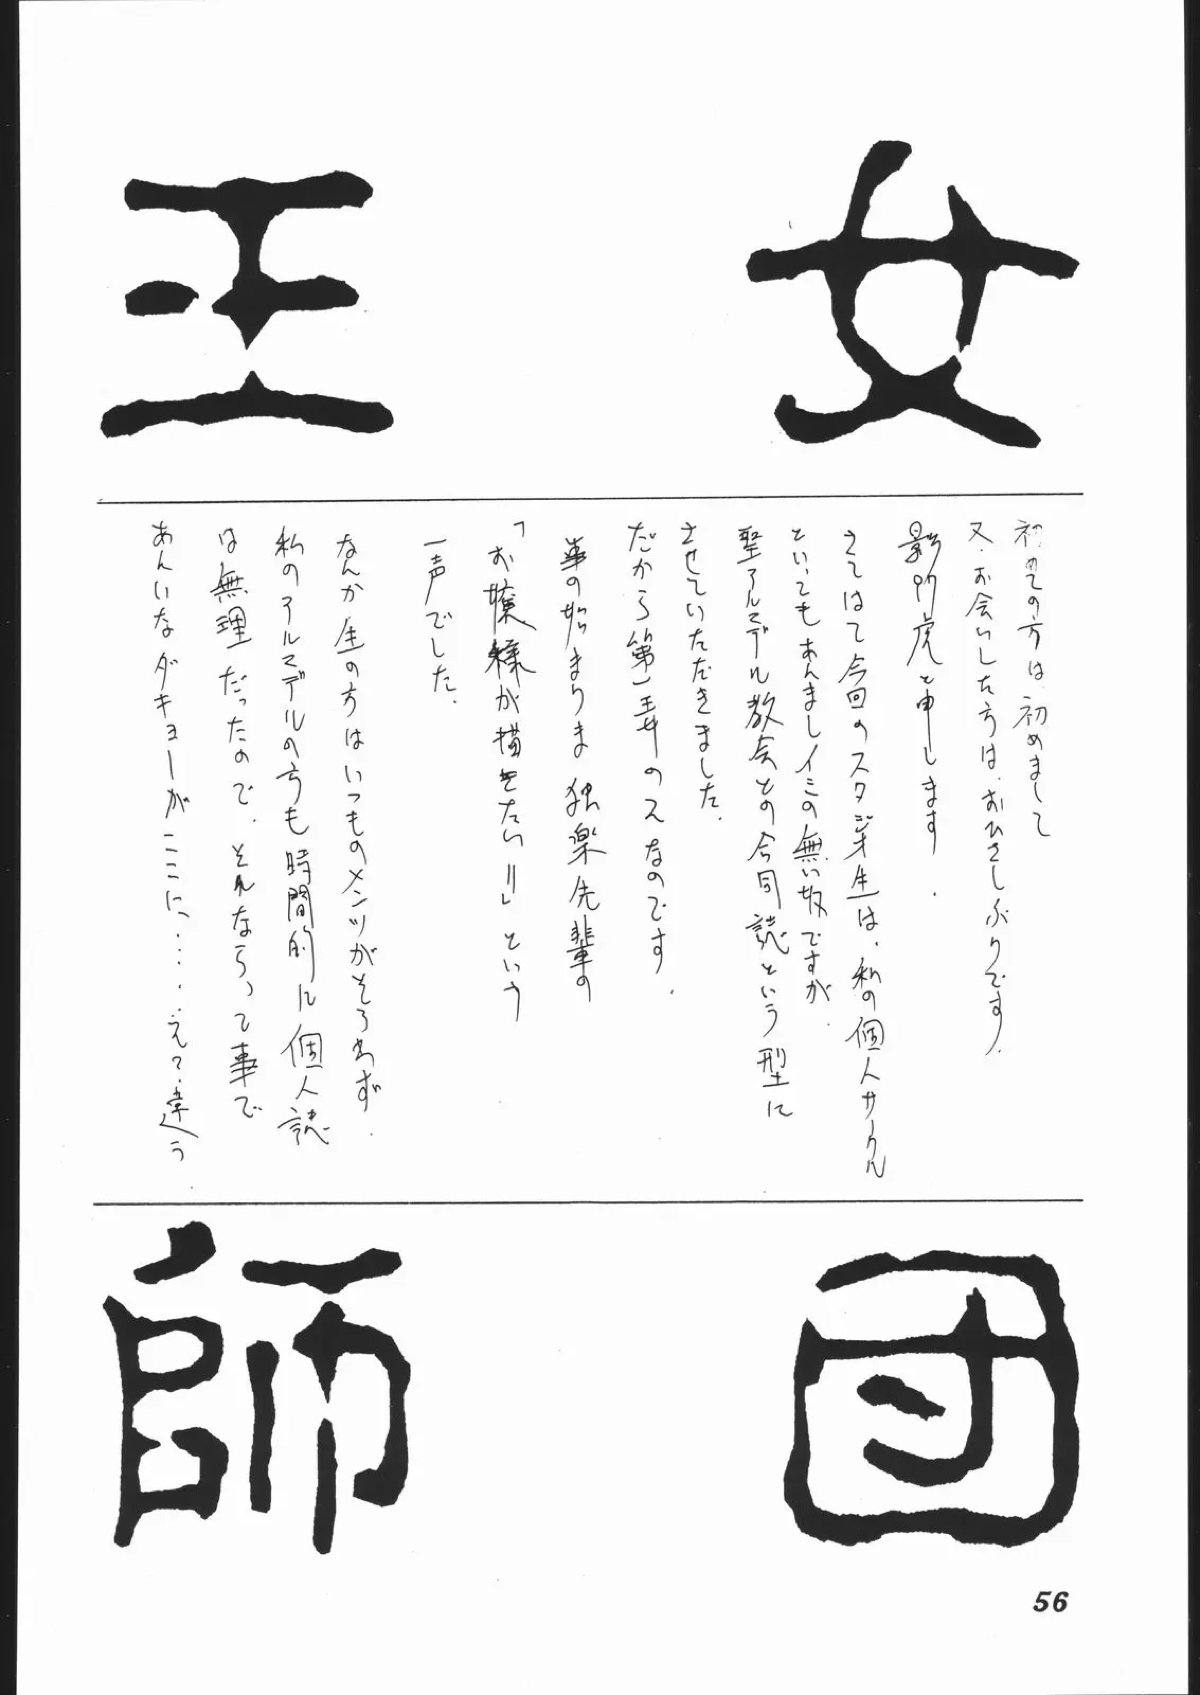 女
王
初めての方は、初めまして
又、お会いした方は、おひさしぶりです、
影狩虎と申します.
さてはて今回のスタジオ生は、私の個人サークル
といってもあんましイミの無い奴ですが、
聖アルマデル教会との合同誌という型に
させていただきました.
だから第一弾のスなのです.
事の始まりま 独楽先輩の
「お嬢様が描きたい!!」という
一声でした.
なんか生の方はいつものメンツがそろわず.
私のアルマデルの方も時間的に個人誌
は無理だったので、それならって事で
あんいなダキョーがここに、……えて、違う
団
師
56